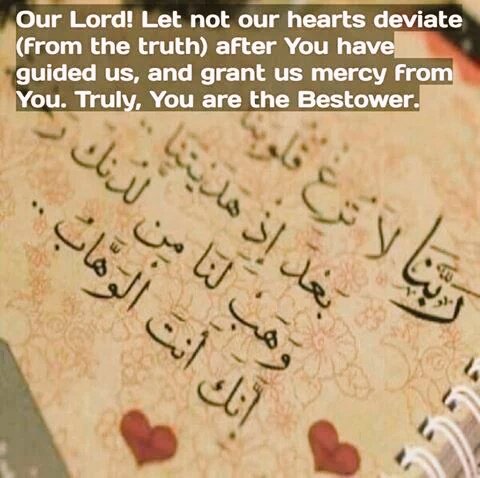 Our Lord! Let not our hearts deviate
(from the truth) after You have
guided us, and grant us mercy from
You. Truly, You are the Bestower.
رَبَّنَا لَا تُزِغْ قُلُوبَنَا
بَعْدَ إِذْ هَدَيْتَنَا ..
وَهَبْ لَنَا مِن لَدُنكَ
أنَّكَ أَنتَ الْوَهَّابُ ..